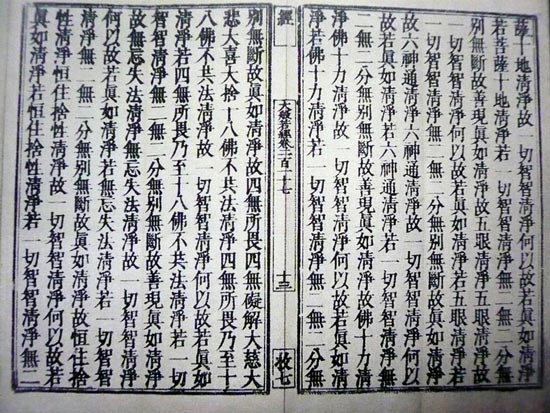 薩十地清淨故一切智智清淨何以故若眞如清淨
若菩薩十地清淨若一切智智清淨無二無二分無
別無斷故善現眞如清淨故五眼清淨五眼清淨故
一切智智清淨何以故若眞如清淨若五眼清淨若
一切智智清淨無二無二分無別無斷故眞如清淨
故六神通清淨六神通清淨故一切智智清淨何以
故若眞如清淨若六神通清淨若一切智智清淨無
二無二分無別無斷故善現眞如清淨故佛十力清
淨佛十力清淨故一切智智清淨何以故若眞如清
淨若佛十力清淨若一切智智清淨無二無二分無
經
大般若經卷
十三
七
別無斷故眞如清淨故四無所畏四無礙解大慈大
悲大喜大捨十八佛不共法清淨四無所畏乃至十
八佛不共法清淨故一切智智清淨何以故若眞如
清淨若四無所畏乃至十八佛不共法清淨若一切
智智清淨無二無二分無別無斷故善現眞如清淨
故無忘失法清淨無忘失法清淨故一切智智清淨
何以故若眞如清淨若無忘失法清淨若一切智智
清淨無二無二分無別無斷故眞如清淨故恒住捨
性清淨恒住捨性清淨故一切智智清淨何以故若
眞如清淨若恒住捨性清淨若一切智智清淨無二